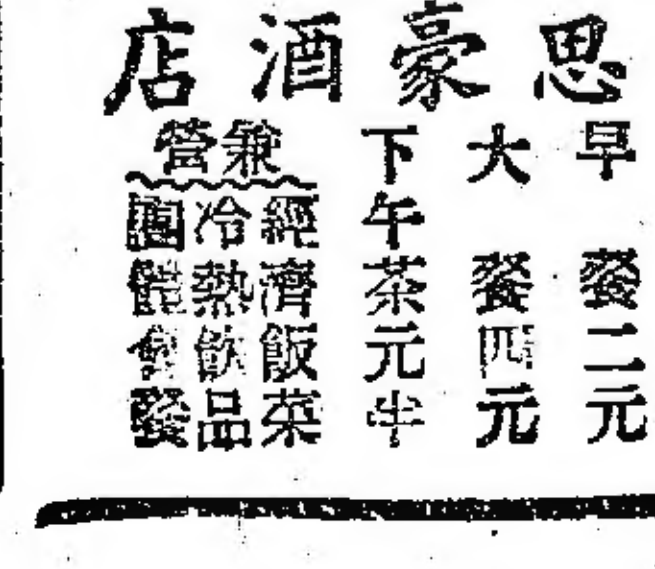 思豪酒店
早餐二元
大餐四元
下午茶元半
兼營
經濟飯菜
冷熱飲品
團體會餐